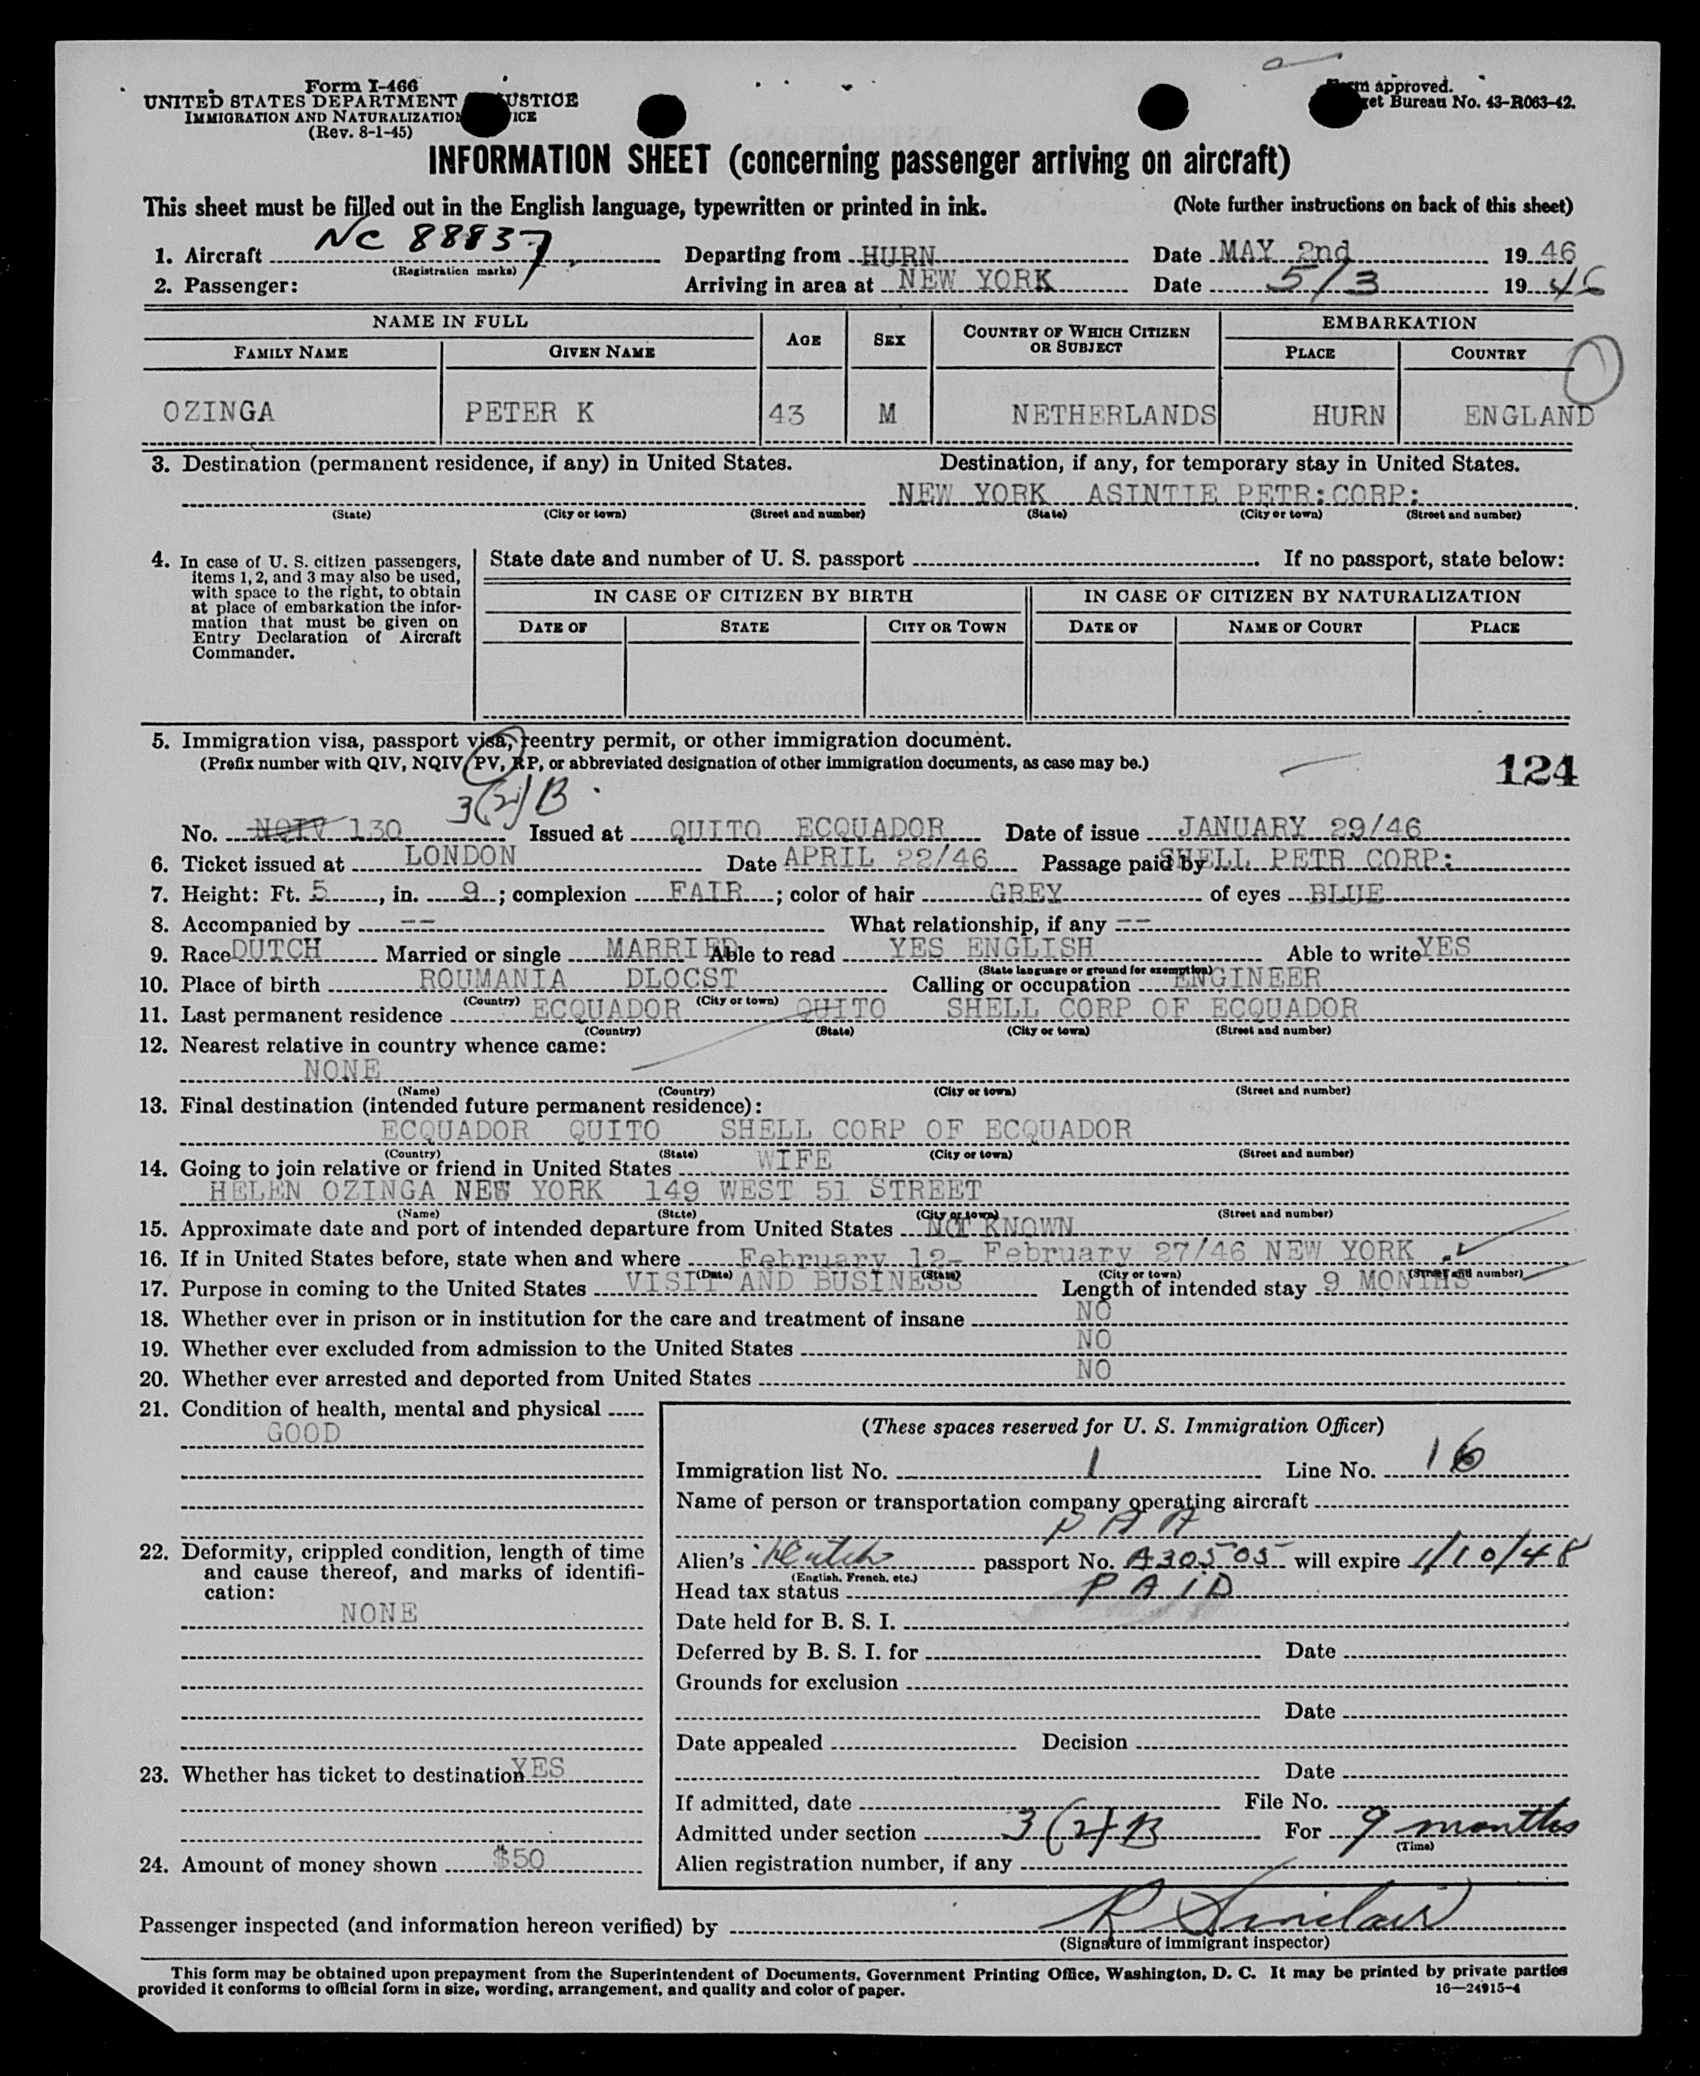 Form I-466
UNITED STATES DEPARTMENT JUSTICE
IMMIGRATION AND NATURALIZATION
(Rev. 8-1-45)
approved.
Bureau No. 43-R063-42.
INFORMATION SHEET (concerning passenger arriving on aircraft)
This sheet must be filled out in the English language, typewritten or printed in ink. (Note further instructions on back of this sheet)
1. Aircraft NC 88837 Departing from HURN Date MAY 2nd 19 46
(Registration marks)
2. Passenger: Arriving in area at NEW YORK Date 5/3 19 46
NAME IN FULL AGE SEX COUNTRY OF WHICH CITIZEN OR SUBJECT EMBARKATION
FAMILY NAME GIVEN NAME PLACE COUNTRY
OZINGA PETER K 43 M NETHERLANDS HURN ENGLAND
3. Destination (permanent residence, if any) in United States. Destination, if any, for temporary stay in United States.
NEW YORK ASINTIE PETR:CORP:
(State) (City or town) (Street and number) (State) (City or town) (Street and number)
4. In case of U. S. citizen passengers,
items 1, 2, and 3 may also be used,
with space to the right, to obtain
at place of embarkation the infor-
mation that must be given on
Entry Declaration of Aircraft
Commander.
State date and number of U. S. passport If no passport, state below:
IN CASE OF CITIZEN BY BIRTH IN CASE OF CITIZEN BY NATURALIZATION
DATE OF STATE CITY OR TOWN DATE OF NAME OF COURT PLACE
5. Immigration visa, passport visa, reentry permit, or other immigration document.
(Prefix number with QIV, NQIV, PV, RP, or abbreviated designation of other immigration documents, as case may be.) 124
3(2)B
No. NQIV 130 Issued at QUITO ECQUADOR Date of issue JANUARY 29/46
6. Ticket issued at LONDON Date APRIL 22/46 Passage paid by SHELL PETR CORP:
7. Height: Ft. 5, in. 9; complexion FAIR; color of hair GREY of eyes BLUE
8. Accompanied by -- What relationship, if any --
9. Race DUTCH Married or single MARRIED Able to read YES ENGLISH Able to write YES
(State language or ground for exemption)
10. Place of birth ROUMANIA DLOCST Calling or occupation ENGINEER
(Country) (City or town)
11. Last permanent residence ECQUADOR QUITO SHELL CORP OF ECQUADOR
(Country) (State) (City or town) (Street and number)
12. Nearest relative in country whence came:
NONE
(Name) (Country) (City or town) (Street and number)
13. Final destination (intended future permanent residence):
ECQUADOR QUITO SHELL CORP OF ECQUADOR
(Country) (State) (City or town) (Street and number)
14. Going to join relative or friend in United States WIFE
HELEN OZINGA NEW YORK 149 WEST 51 STREET
(Name) (State) (City or town) (Street and number)
15. Approximate date and port of intended departure from United States NOT KNOWN
16. If in United States before, state when and where February 12- February 27/46 NEW YORK
(Date) (State) (City or town) (Street and number)
17. Purpose in coming to the United States VISIT AND BUSINESS Length of intended stay 9 MONTHS
18. Whether ever in prison or in institution for the care and treatment of insane NO
19. Whether ever excluded from admission to the United States NO
20. Whether ever arrested and deported from United States NO
21. Condition of health, mental and physical
GOOD
22. Deformity, crippled condition, length of time
and cause thereof, and marks of identifi-
cation:
NONE
23. Whether has ticket to destination YES
24. Amount of money shown $50
(These spaces reserved for U. S. Immigration Officer)
Immigration list No. 1 Line No. 16
Name of person or transportation company operating aircraft
PAA
Alien's Dutch passport No. A30505 will expire 1/10/48
(English, French, etc.)
Head tax status PAID
Date held for B. S. I.
Deferred by B. S. I. for Date
Grounds for exclusion
Date
Date appealed Decision
Date
If admitted, date File No.
Admitted under section 3(2)B For 9 months
(Time)
Alien registration number, if any
Passenger inspected (and information hereon verified) by R Sinclair
(Signature of immigrant inspector)
This form may be obtained upon prepayment from the Superintendent of Documents, Government Printing Office, Washington, D. C. It may be printed by private parties
provided it conforms to official form in size, wording, arrangement, and quality and color of paper. 16—24915-4